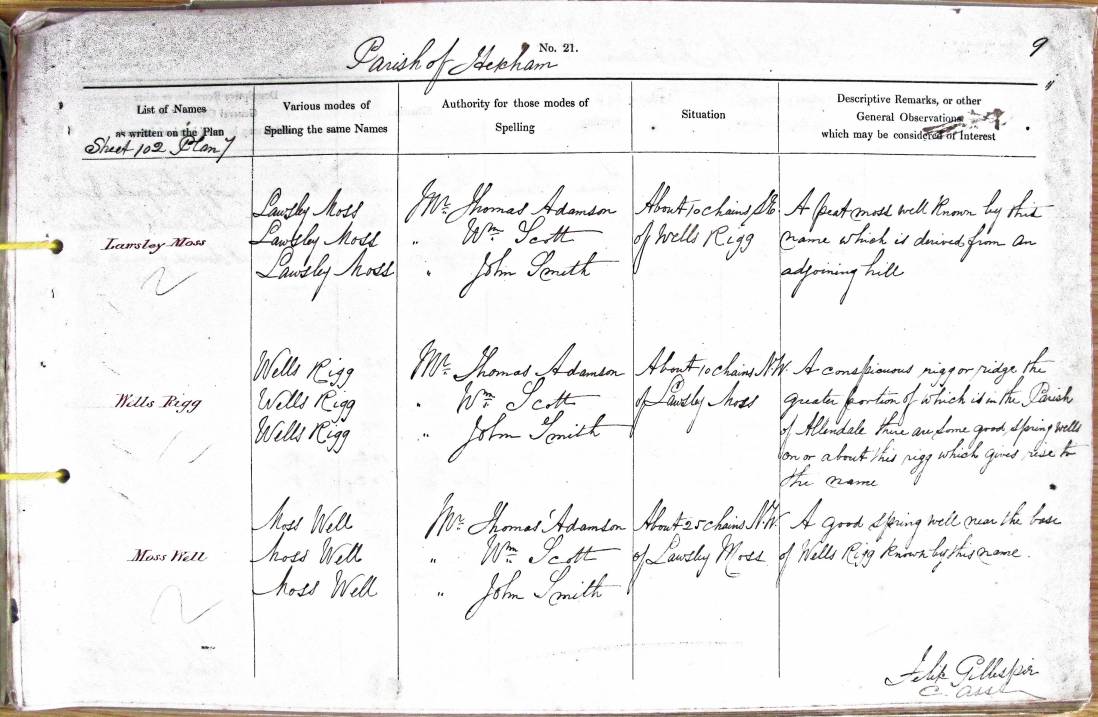 No. 21.
Parish of Hexham
9
List of Names
as written on the Plan
Sheet 102 Plan 7
Various modes of
Spelling the same Names
Authority for those modes of
Spelling
Situation
Descriptive Remarks, or other
General Observations
which may be considered of Interest
Lawsley Moss
Lawsley Moss
Lawsley Moss
Lawsley Moss
Mr. Thomas Adamson
" Wm. Scott
" John Smith
About 10 chains S.E.
of Wells Rigg
A peat moss well known by this
name which is derived from an
adjoining hill
Wells Rigg
Wells Rigg
Wells Rigg
Wells Rigg
Mr. Thomas Adamson
" Wm. Scott
" John Smith
About 10 chains N.W.
of Lawsley Moss
A conspicuous rigg or ridge the
greater portion of which is in the Parish
of Allendale there are some good spring wells
on or about this rigg which gives rise to
the name
Moss Well
Moss Well
Moss Well
Moss Well
Mr. Thomas Adamson
" Wm. Scott
" John Smith
About 25 chains N.W.
of Lawsley Moss
A good spring well near the base
of Wells Rigg known by this name.
Felix Gillespie
C. Asst